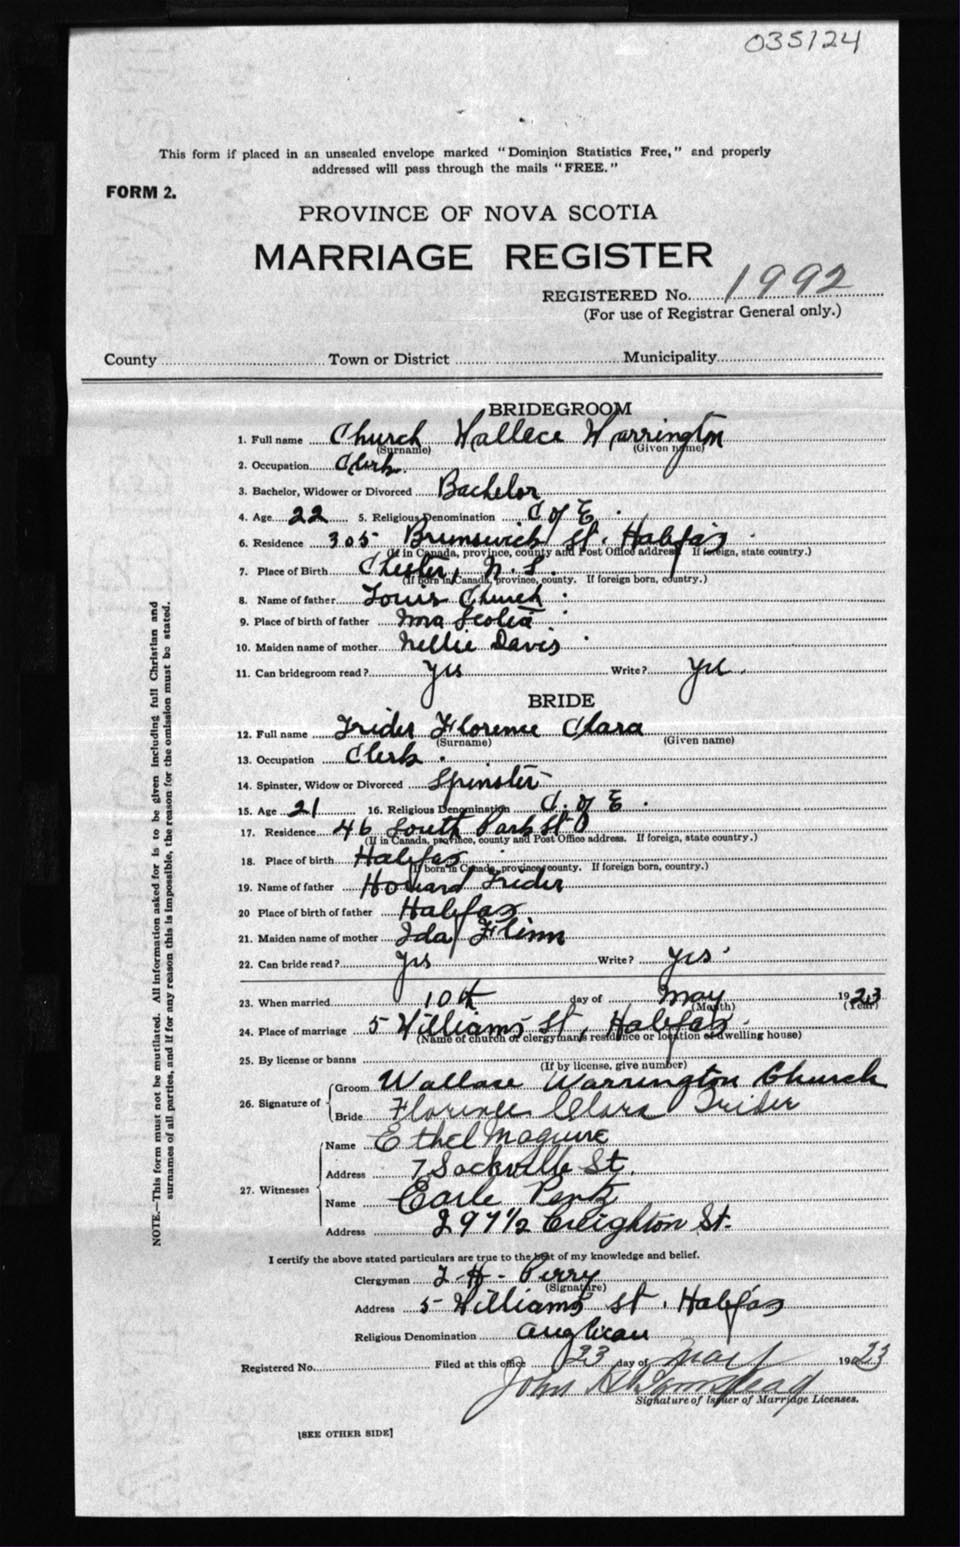 035124
This form if placed in an unsealed envelope marked "Dominion Statistics Free," and properly
addressed will pass through the mails "FREE."
FORM 2.
PROVINCE OF NOVA SCOTIA
MARRIAGE REGISTER
REGISTERED No. 1992
(For use of Registrar General only.)
County Town or District Municipality
BRIDEGROOM
1. Full name Church Wallace Warrington
(Surname) (Given name)
2. Occupation Clerk
3. Bachelor, Widower or Divorced Bachelor
4. Age 22 5. Religious Denomination C of E.
6. Residence 305 Brunswick St. Halifax
(If in Canada, province, county and Post Office address. If foreign, state country.)
7. Place of Birth Chester, N.S.
(If born in Canada, province, county. If foreign born, country.)
8. Name of father Louis Church
9. Place of birth of father Nova Scotia
10. Maiden name of mother Nellie Davis
11. Can bridegroom read? Yes Write? Yes
BRIDE
12. Full name Trider Florence Clara
(Surname) (Given name)
13. Occupation Clerk.
14. Spinster, Widow or Divorced Spinster
15. Age 21 16. Religious Denomination C. of E.
17. Residence 46 South Park St
(If in Canada, province, county and Post Office address. If foreign, state country.)
18. Place of birth Halifax
(If born in Canada, province, county. If foreign born, country.)
19. Name of father Howard Trider
20 Place of birth of father Halifax
21. Maiden name of mother Ida Flinn
22. Can bride read? Yes Write? Yes
23. When married 10th day of May 1923
(Month) (Year)
24. Place of marriage 5 Williams St, Halifax.
(Name of church or clergyman's residence or location of dwelling house)
25. By license or banns
(If by license, give number)
26. Signature of Groom Wallace Warrington Church
Bride Florence Clara Trider
27. Witnesses Name Ethel Maguire
Address 7 Sackville St.
Name Earle Pentz
Address 297 1/2 Creighton St.
I certify the above stated particulars are true to the best of my knowledge and belief.
Clergyman Perry
(Signature)
Address 5 Williams St. Halifax
Religious Denomination Anglican
Registered No. Filed at this office 23 day of May 1923
John
Signature of Issuer of Marriage Licenses.
[SEE OTHER SIDE]
NOTE.—This form must not be mutilated. All information asked for is to be given including full Christian and
surnames of all parties, and if for any reason this is impossible, the reason for the omission must be stated.